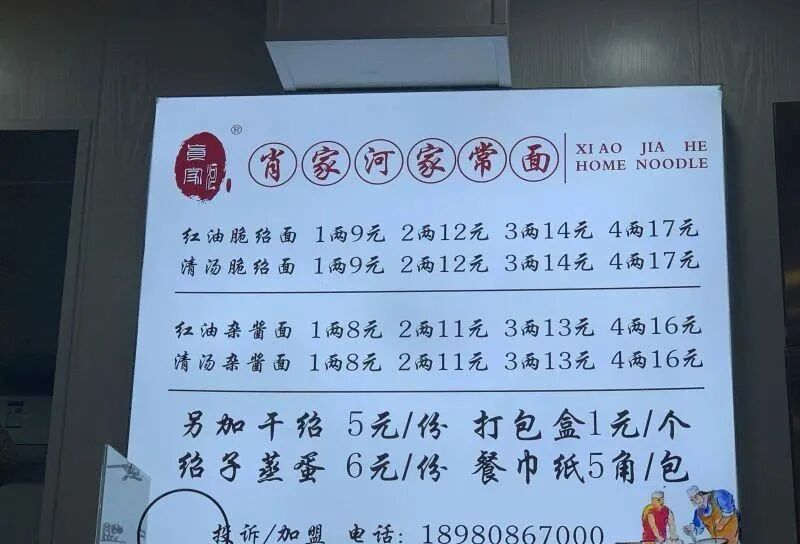 ®
肖家河
肖家河家常面
XIAO JIA HE
HOME NOODLE
红油脆绍面 1两9元 2两12元 3两14元 4两17元
清汤脆绍面 1两9元 2两12元 3两14元 4两17元
红油杂酱面 1两8元 2两11元 3两13元 4两16元
清汤杂酱面 1两8元 2两11元 3两13元 4两16元
另加干绍 5元/份 打包盒1元/个
绍子蒸蛋 6元/份 餐巾纸5角/包
投诉/加盟 电话: 18980867000